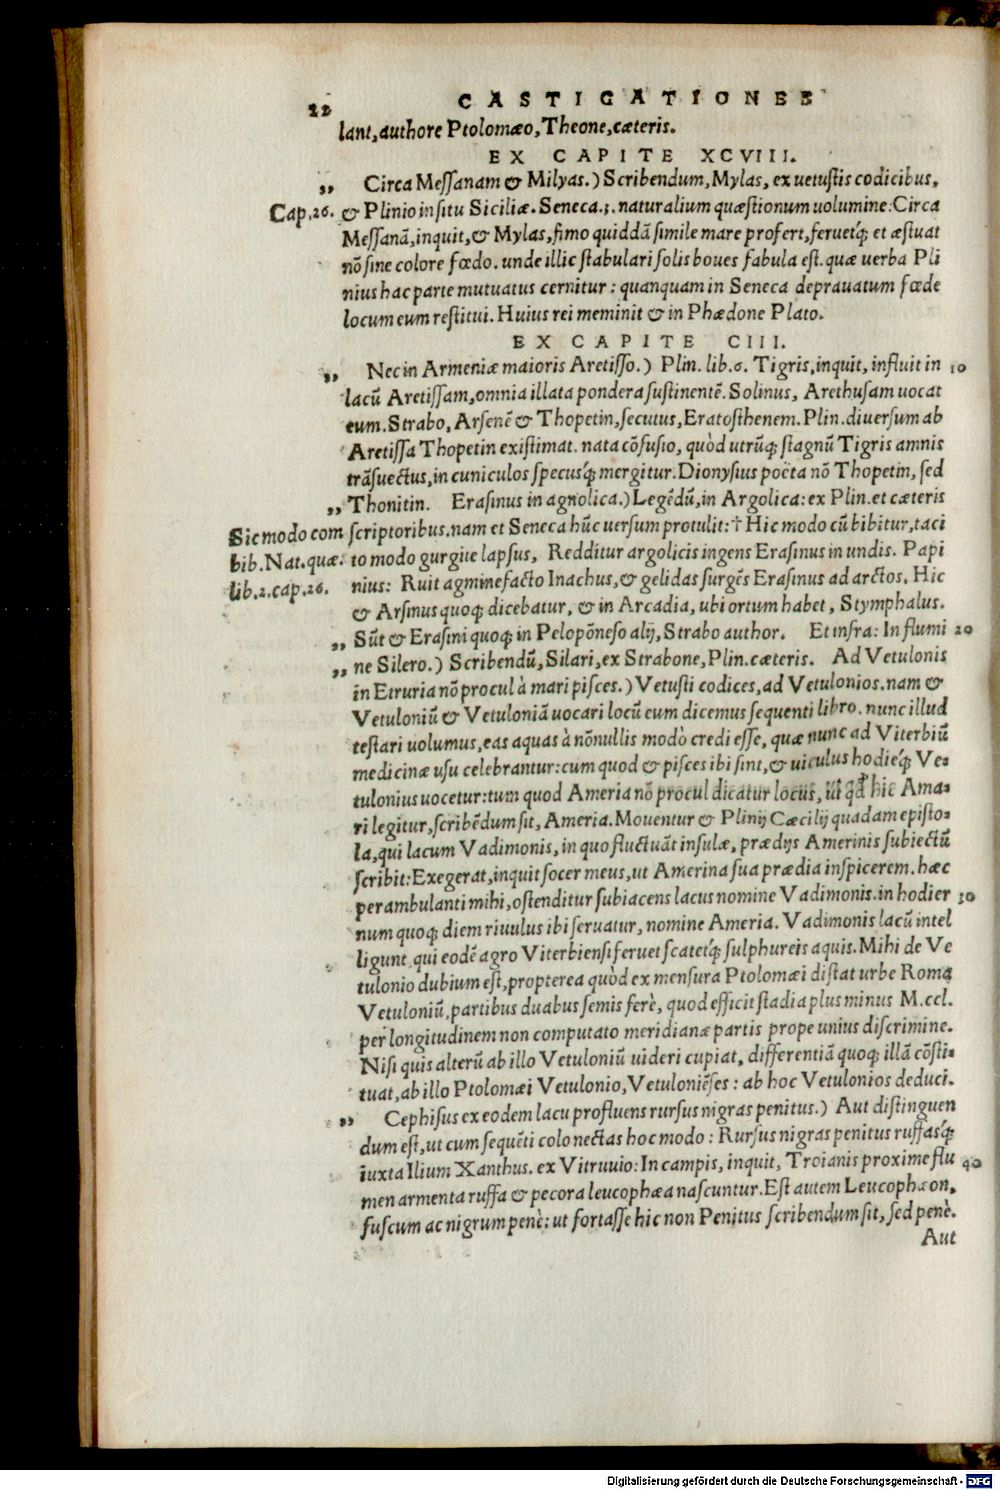 22 CASTIGATIONES
lant, authore Ptolomæo, Theone, cæteris.
EX CAPITE XCVIII.
„ Circa Messanam & Milyas.) Scribendum, Mylas, ex uetustis codicibus,
Cap. 26. & Plinio in situ Siciliæ. Seneca .3. naturalium quæstionum uolumine: Circa
Messanā, inquit, & Mylas, fimo quiddā simile mare profert, feruetq́; et æstuat
nō sine colore fœdo. unde illic stabulari solis boues fabula est. quæ uerba Pli
nius hac parte mutuatus cernitur: quanquam in Seneca deprauatum fœde
locum eum restitui. Huius rei meminit & in Phædone Plato.
EX CAPITE CIII.
„ Nec in Armeniæ maioris Aretisso.) Plin. lib. 6. Tigris, inquit, influit in 10
lacū Aretissam, omnia illata pondera sustinentē. Solinus, Arethusam uocat
eum. Strabo, Arsenē & Thopetin, secutus, Eratosthenem. Plin. diuersum ab
Aretissa Thopetin existimat. nata cōfusio, quòd utrūq; stagnū Tigris amnis
trāsuectus, in cuniculos specusq́; mergitur. Dionysius poëta nō Thopetin, sed
„ Thonitin. Erasinus in agnolica.) Legēdū, in Argolica: ex Plin. et cæteris
Sic modo com scriptoribus. nam et Seneca hūc uersum protulit: † Hic modo cū bibitur, taci
bib. Nat. quæ. to modo gurgite lapsus, Redditur argolicis ingens Erasinus in undis. Papi
lib. 2. cap. 26. nius: Ruit agmine facto Inachus, & gelidas surgēs Erasinus ad arctos. Hic
& Arsinus quoq; dicebatur, & in Arcadia, ubi ortum habet, Stymphalus.
„ Sūt & Erasini quoq; in Pelopōneso alij, Strabo author. Et infra: In flumi 20
„ ne Silero.) Scribendū, Silari, ex Strabone, Plin. cæteris. Ad Vetulonis
in Etruria nō procul à mari pisces.) Vetusti codices, ad Vetulonios. nam &
Vetuloniū & Vetuloniā uocari locū eum dicemus sequenti libro. nunc illud
testari uolumus, eas aquas à nōnullis modò credi esse, quæ nunc ad Viterbiū
medicinæ usu celebrantur: cum quod & pisces ibi sint, & uiculus hodieq́; Ve-
tulonius uocetur: tum quod Ameria nō procul dicatur locus, ut qđ hic Ama-
ri legitur, scribēdum sit, Ameria. Mouentur & Plinij Cæcilij quadam episto-
la, qui lacum Vadimonis, in quo fluctuāt insulæ, prædijs Amerinis subiectū
scribit: Exegerat, inquit socer meus, ut Amerina sua prædia inspicerem. hæc
perambulanti mihi, ostenditur subiacens lacus nomine Vadimonis. in hodier 30
num quoq; diem riuulus ibi seruatur, nomine Ameria. Vadimonis lacū intel
ligunt qui eodē agro Viterbiensi feruet scatetq́; sulphureis aquis. Mihi de Ve
tulonio dubium est, propterea quòd ex mensura Ptolomæi distat urbe Roma
Vetuloniū, partibus duabus semis ferè, quod efficit stadia plus minus M.ccl.
per longitudinem non computato meridianæ partis prope unius discrimine.
Nisi quis alterū ab illo Vetuloniū uideri cupiat, differentiā quoq; illā cōsti-
tuat, ab illo Ptolomæi Vetulonio, Vetuloniēses: ab hoc Vetulonios deduci.
„ Cephisus ex eodem lacu profluens rursus nigras penitus.) Aut distinguen
dum est, ut cum sequēti colo nectas hoc modo: Rursus nigras penitus ruffasq́;
iuxta Ilium Xanthus. ex Vitruuio: In campis, inquit, Troianis proxime flu 40
men armenta ruffa & pecora leucophæa nascuntur. Est autem Leucophæon,
fuscum ac nigrum penè: ut fortasse hic non Penitus scribendum sit, sed penè.
Aut
Digitalisierung gefördert durch die Deutsche Forschungsgemeinschaft - DFG